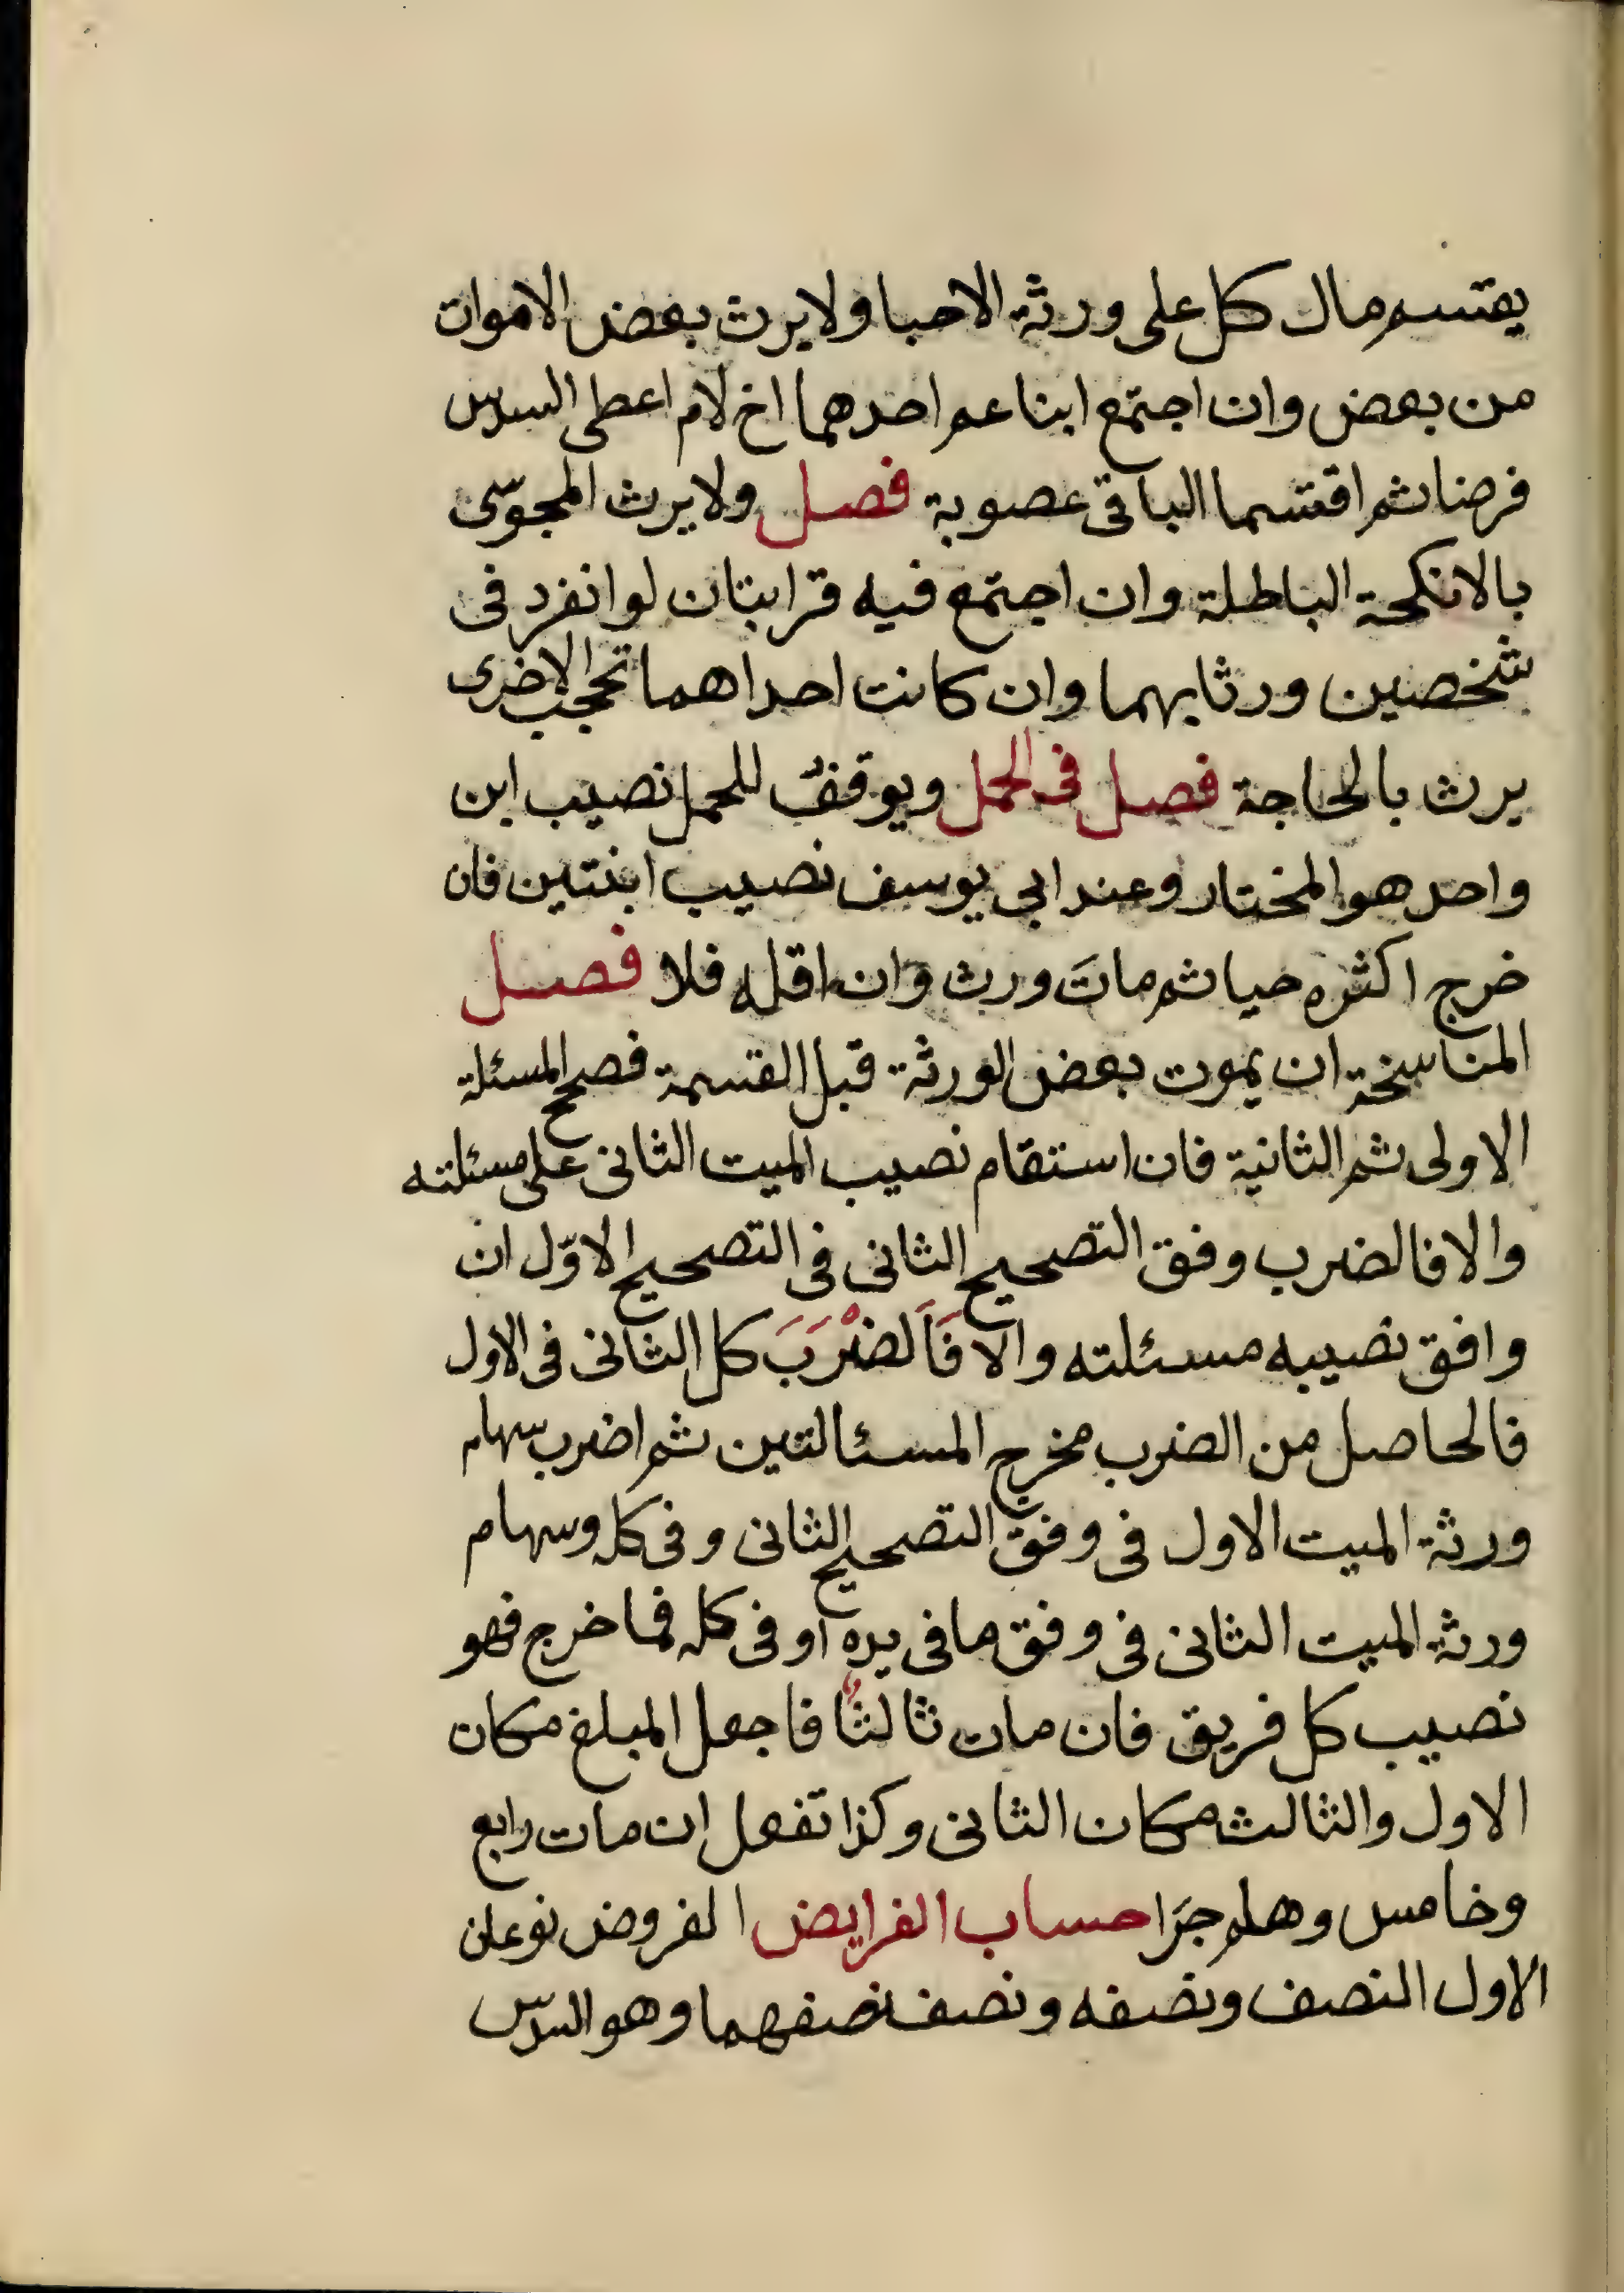 يقتسم مال كل على ورثة الاحيا ولا يرث بعض الاموات
من بعض وان اجتمع ابنا عم احدهما اخ لام اعطى السدس
فرضا ثم اقتسما الباقى عصوبة فصل ولا يرث المجوسّى
بالانكحة الباطلة وان اجتمع فيه قرابتان لو انفرد فى
شخصين ورثا بهما وان كانت احداهما تحجب الاخرى
يرث بالحاجة فصل فى الحمل ويوقف للحمل نصيب ابن
واحد هو المختار وعند ابى يوسف نصيب ابنتين فان
خرج اكثره حيا ثم ماتَ ورث وان اقله فلا فصل
المناسخة ان يموت بعض الورثة قبل القسمة فصحح المسئلة
الاولى ثم الثانية فان استقام نصيب الميت الثانى على مسئلته
والا فالضرب وفق التصحيح الثانى فى التصحيح الاوّل ان
وافق نصيبه مسئلته والا فَاَلضْرَبَ كل الثانى فى الاول
فالحاصل من الضرب مخرج المسئالتين ثم اضرب سهام
ورثة الميت الاول فى وفق التصحيح الثانى وفى كله وسهام
ورثة الميت الثانى فى وفق ما فى يده او فى كله فما خرج فهو
نصيب كل فريق فان مات ثالثا فاجعل المبلغ مكان
الاول والثالث مكان الثانى وكذا تفعل ان مات رابع
وخامس وهلم جرّا حساب الفرايض الفروض نوعان
الاول النصف ونصفه ونصف نصفهما وهو السدّس